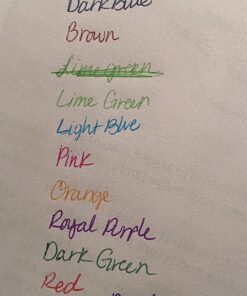 Dark Blue
Brown
Lime green
Lime Green
Light Blue
Pink
Orange
Royal Purple
Dark Green
Red